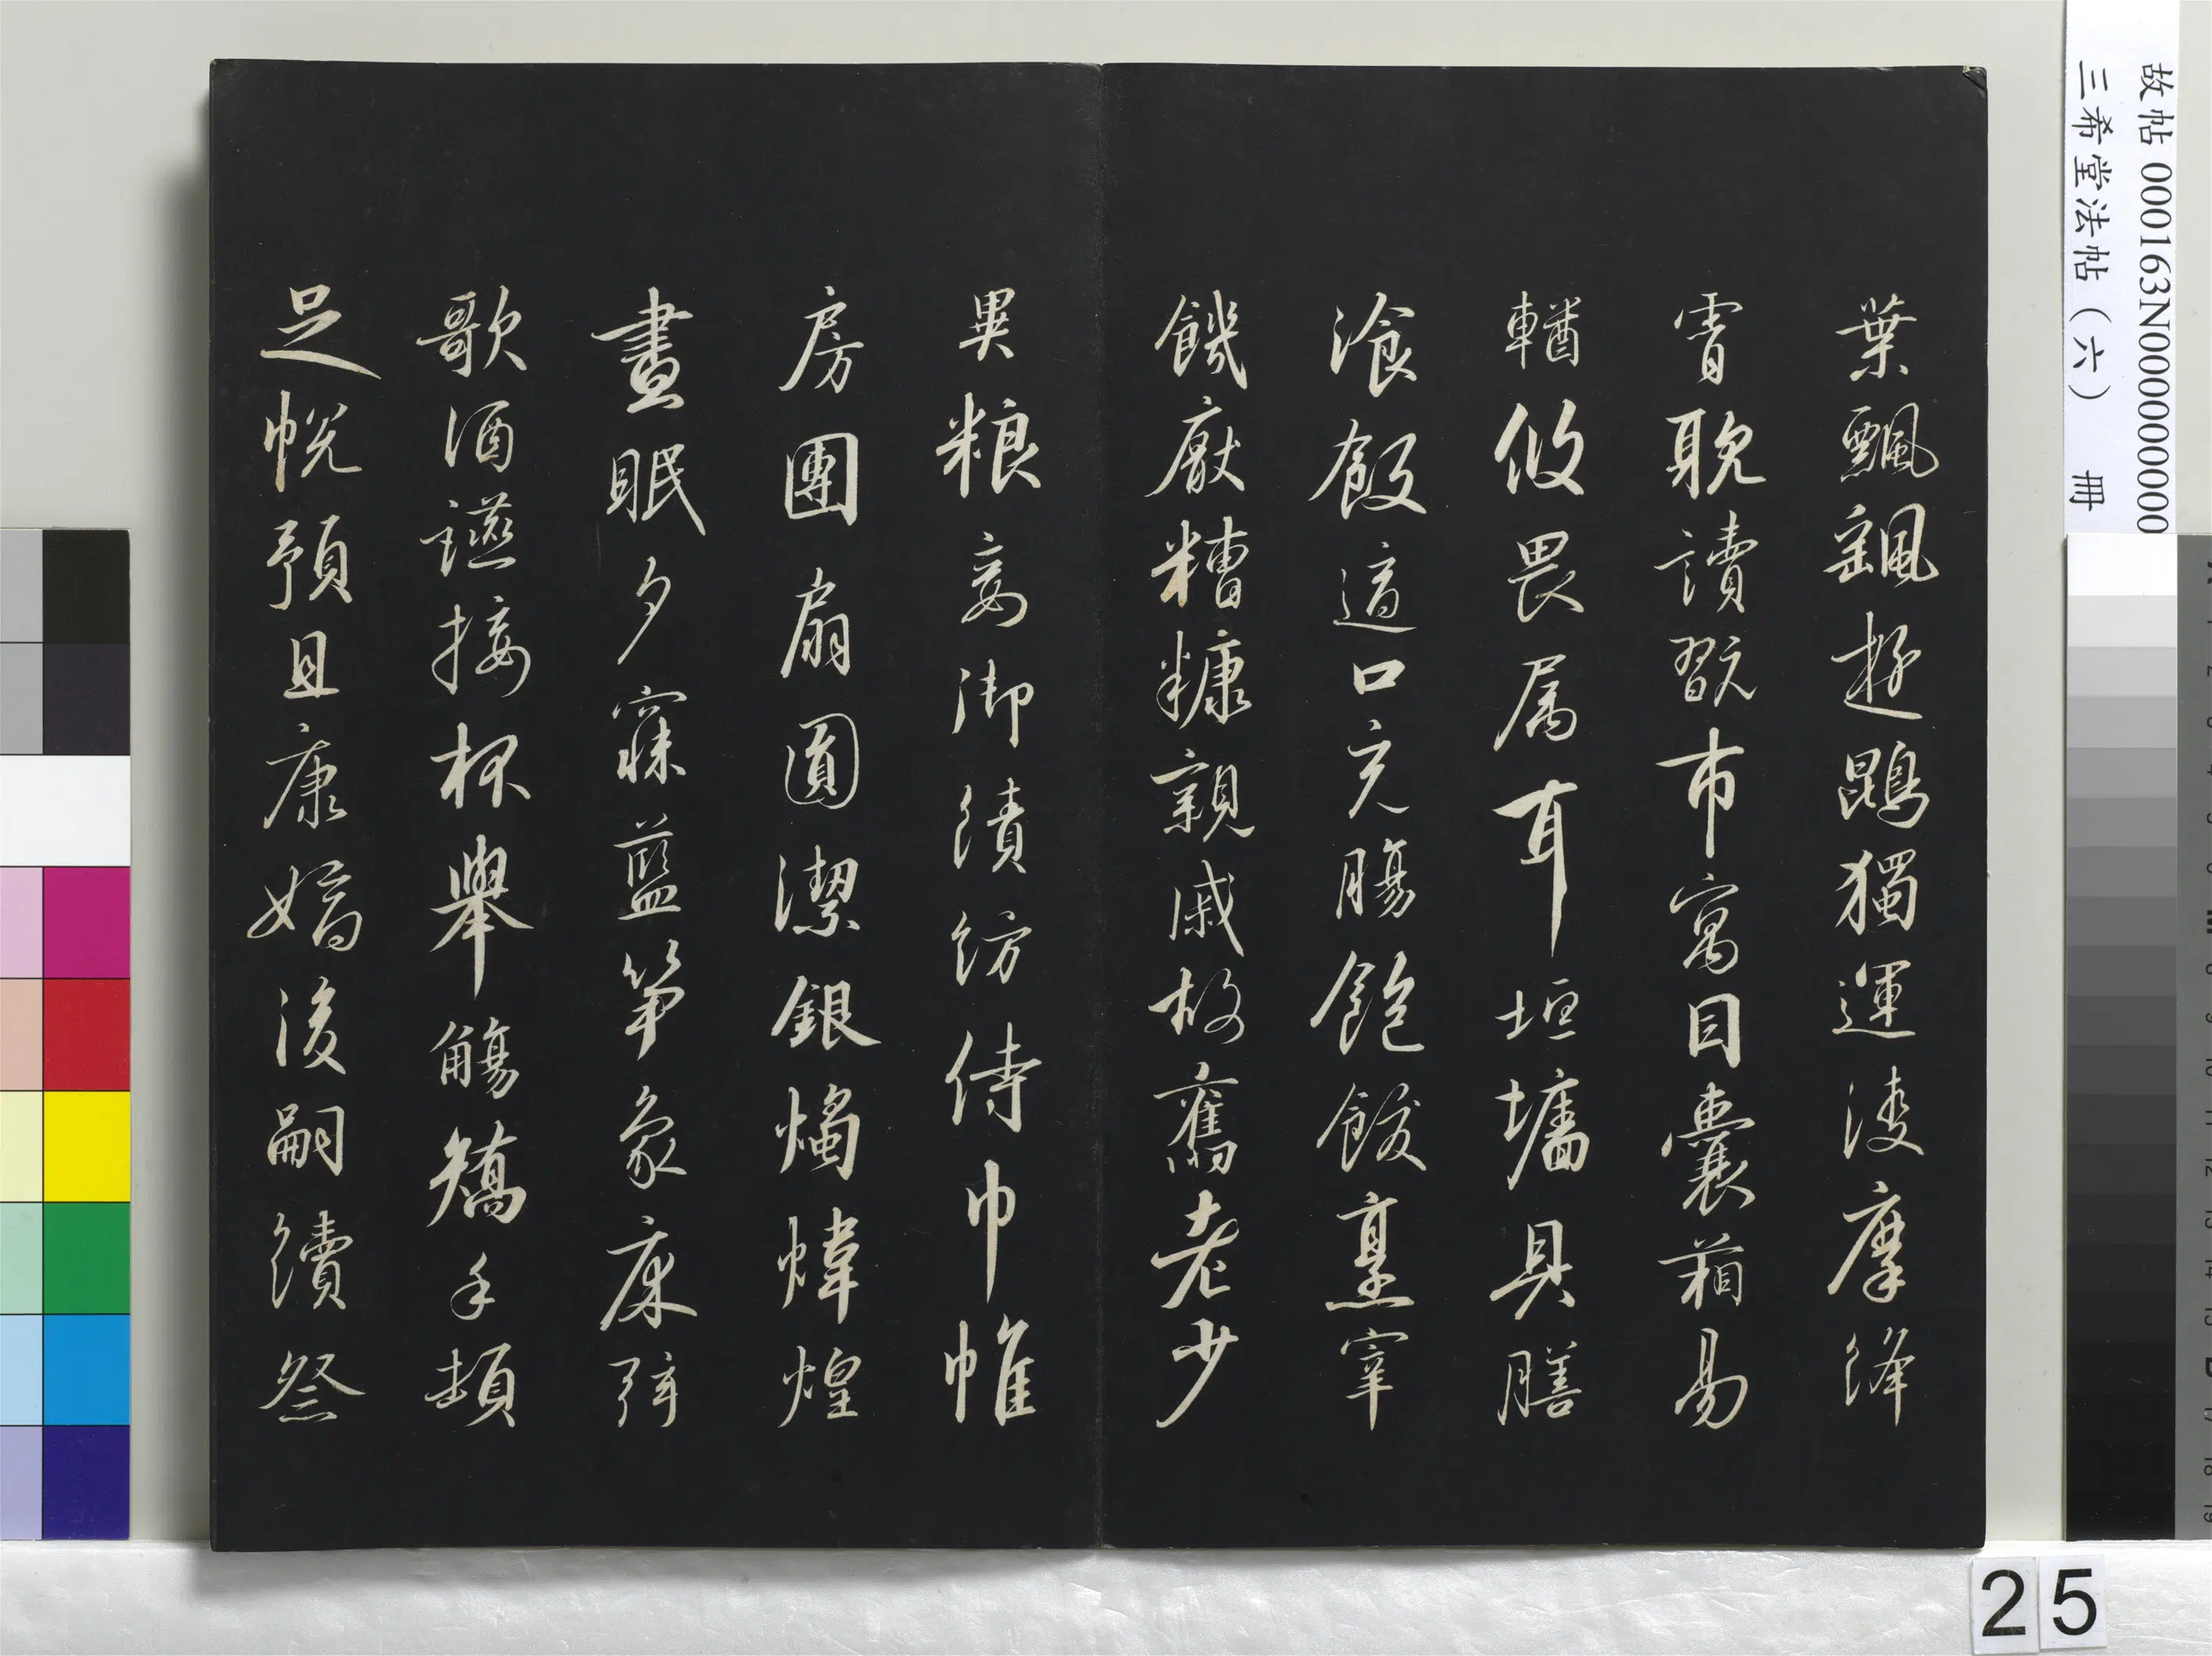 葉飄颻遊鵾獨運凌摩絳
霄耽讀翫市寓目囊箱易
輶攸畏属耳垣墻具膳
湌飯適口充腸飽飫烹宰
饑厭糟糠親戚故舊老少
異粮妾御績紡侍巾帷
房團扇圓潔銀燭煒煌
晝眠夕寐藍笋象床弦
歌酒讌接杯舉觴矯手頓
足悅預且康嫡後嗣續祭
故帖 000163N000000000
三希堂法帖（六） 冊
25